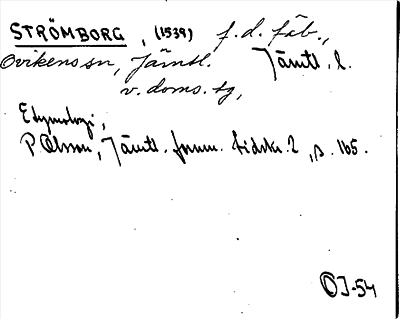 STRÖMBORG, (1539) f.d. fäb.,
Ovikens sn, Jämtl. Jämtl. l.
v. doms. tg,
Etymologi,
P. Olsson, Jämtl. fornm. tidskr. 2, s. 165.
OJ-54